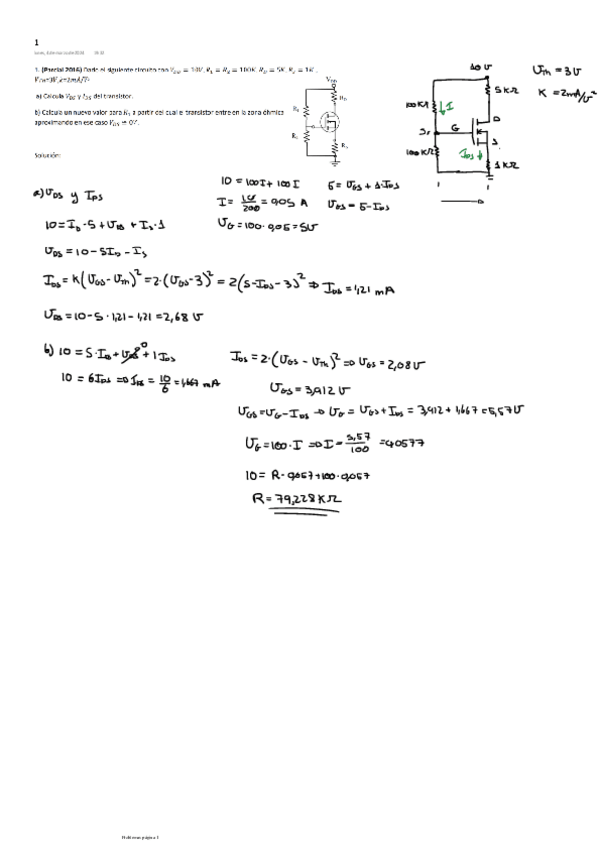 1
1. (Parcial 2016) Dado el siguiente circuito con V_DD = 10V, R_1 = R_2 = 100K, R_D = 5K, R_S = 1K,
a) Calcula V_DS y I_DS del transistor.
b) Calcula un nuevo valor para R_1 a partir del cual el transistor entre en la zona óhmica
aproximando en ese caso V_DS = 0V.
Solución:
V_DD
R_1
R_D
R_2
R_S
10 V
100 KΩ
I
5 KΩ
D
G
S
100 KΩ
I_DS
1 KΩ
U_Th = 3V
K = 2mA/V²
a) U_DS y I_DS
10 = I_D·5 + U_DS + I_S·1
U_DS = 10 - 5I_D - I_S
10 = 100I + 100I
I = 10/200 = 0,05 A
U_G = 100·0,05 = 5V
5 = U_GS + 1·I_DS
U_GS = 5 - I_DS
I_DS = K(U_GS - U_Th)² = 2·(U_GS - 3)² = 2(5 - I_DS - 3)² ⇒ I_DS = 1,21 mA
U_DS = 10 - 5·1,21 - 1,21 = 2,68 V
b) 10 = 5·I_D + U_DS + 1 I_DS
0
10 = 6I_DS ⇒ I_DS = 10/6 = 1,667 mA
I_DS = 2·(U_GS - U_Th)² ⇒ U_GS = 2,08V
U_GS = 3,912 V
U_GS = U_G - I_DS ⇒ U_G = U_GS + I_DS = 3,912 + 1,667 = 5,57V
U_G = 100·I ⇒ I = 5,57/100 = 0,0577
10 = R·0,057 + 100·0,057
R = 79,228 KΩ
Problemas página 1